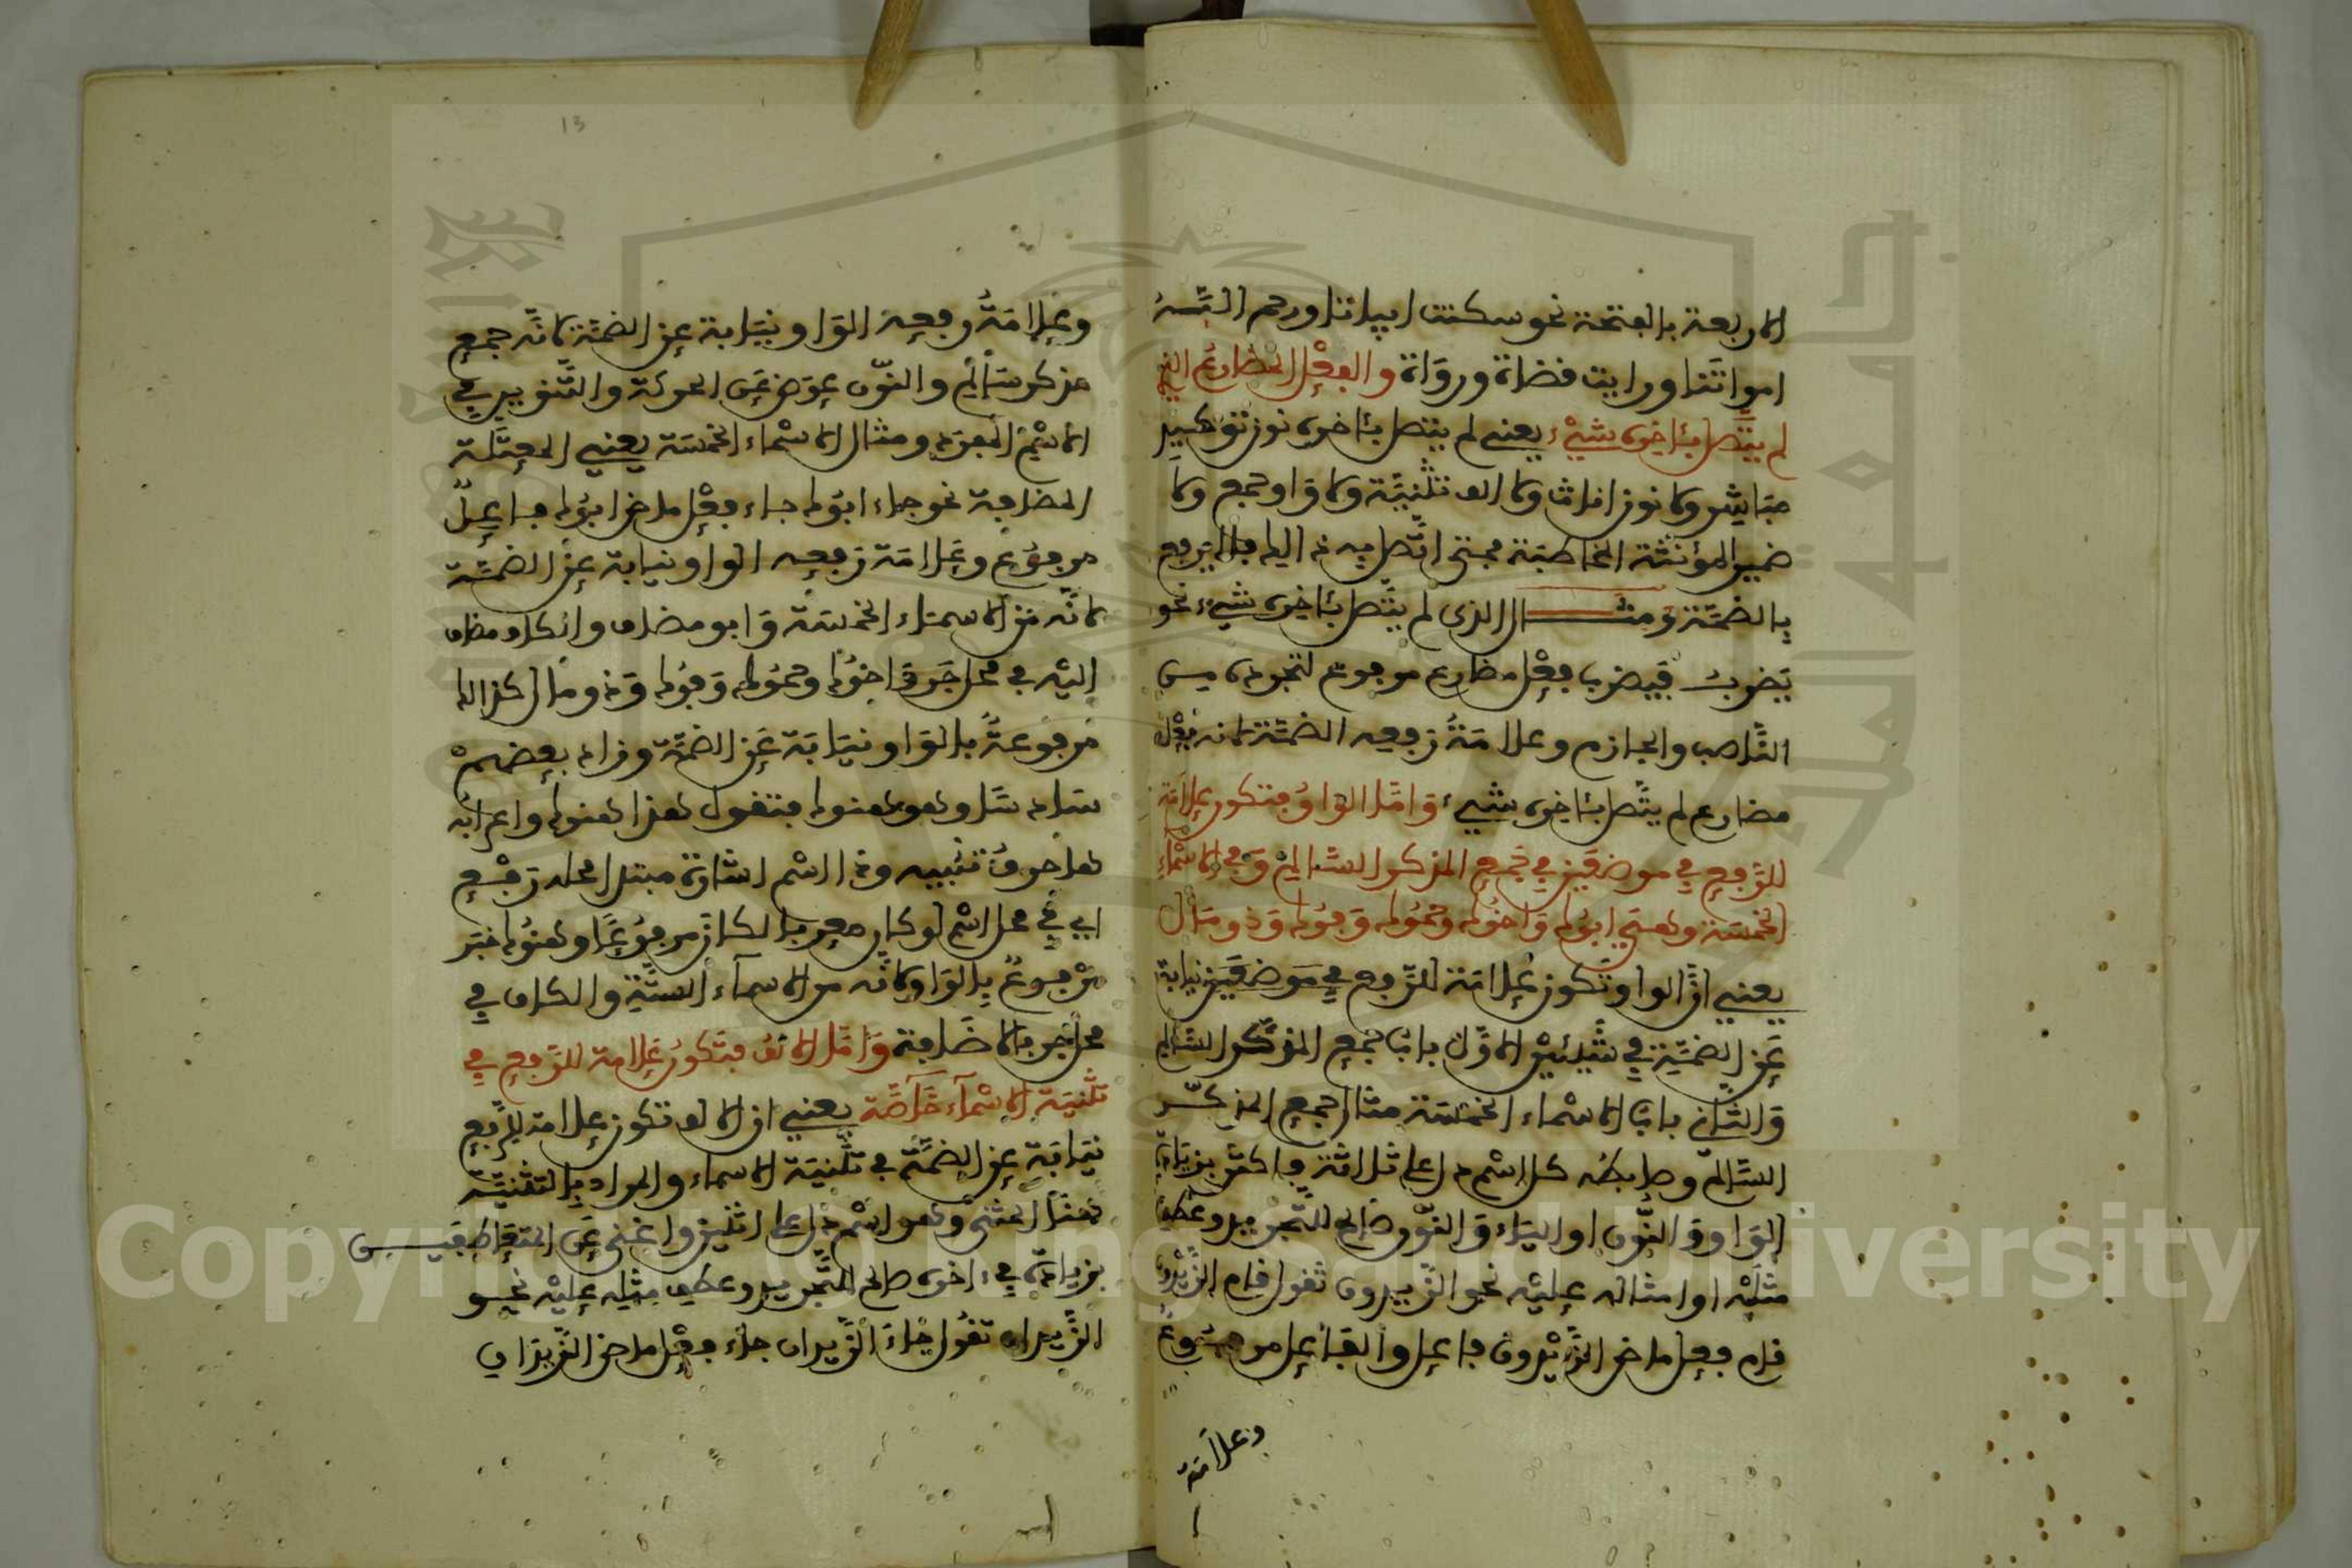 الاربعة بالفتحة نحو سكنت ابياتنا ورحم الله
امواتنا ورايت قضاة ورواة والفعل المضارع الذي
لم يتصل بئاخره شيء يعني لم يتصل بئاخره نون توكيد
مباشر ولا نون اناث ولا الف تثنية ولا واو جمع ولا
ضمير المؤنثة المخاطبة فمتى اتصل به ذالك فلا يرفع
بالضمة ومثـــال الذي لم يتصل بئاخره شيء نحو
يضرب فيضرب فعل مضارع مرفوع لتجرده من
الناصب والجازم وعلامة رفعه الضمة لانه فعل
مضارع لم يتصل بئاخره شيء واما الواو فتكون علامة
للرفع في موضعين في جمع المذكر السالم وفي الاسماء
الخمسة وهي ابوك واخوك وحموك وفوك وذو مال
يعني ان الواو تكون علامة للرفع في موضعين نيابة
عن الضمة في شيئين الاول باب جمع المذكر السالم
والثاني باب الاسماء الخمسة مثال جمع المذكـر
السالم وضابطه كل اسم دل على ثلاثة فاكثر بزيادة
الواو والنون او الياء والنون صالح للتجريد وعطف
مثليه او امثاله عليه نحو الزيدون تقول قام الزيدون
قام فعل ماض الزيدون فاعل والفاعل مرفوع
وعلامة
13
وعلامة رفعه الواو نيابة عن الضمة لانه جمع
مذكر سالم والنون عوض عن الحركة والتنوين في
الاسم المفرد ومثال الاسماء الخمسة يعني المعتلة
المضافة نحو جاء ابوك جاء فعل ماض ابوك فاعل
مرفوع وعلامة رفعه الواو نيابة عن الضمة
لانه من الاسماء الخمسة وابو مضاف والكاف مضاف
اليه في محل جر واخوك وحموك وفوك وذو مال كذالك
مرفوعة بالواو نيابة عن الضمة وزاد بعضهم
سادسا وهو هنوك فتقول هذا هنوك واعرابه
ها حرف تنبيه وذا اسم اشارة مبتدا محله رفع
اي في محل اسم لو كان معربا لكان مرفوعا وهنوك خبر
مرفوع بالواو لانه من الاسماء الستة والكاف في
محل جر بالاضافة واما الالف فتكون علامة للرفع في
تثنية الاسماء خاصة يعني ان الالف تكون علامة للرفع
نيابة عن الضمة في تثنية الاسماء والمراد بالتثنية
هنا المثنى وهو اسم دل على اثنين واغنى عن المتعاطفيـن
بزيادة في ءاخره صالح للتجريد وعطف مثله عليه نحـو
الزيدان تقول جاء الزيدان جاء فعل ماض الزيدان
Copyright © King Saud University